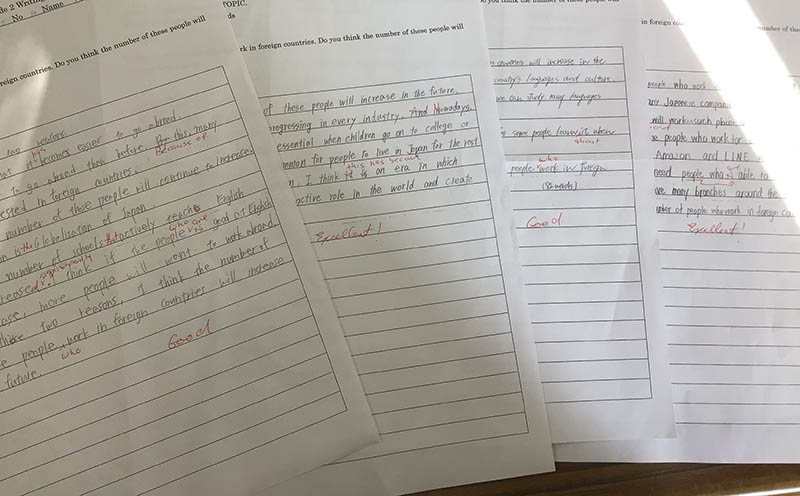 de 2 Writing
No Name
TOPIC.
ds
reign countries. Do you think the number of these people will
two reasons
has
becomes easier to go abroad
to go abroad then before. By this, many
Because of
ested in foreign countries.
number of those people will continue to increase
Globalization of Japan
number of schools that actively teach English
significantly
who are
creased. think if the people good at English
ase, more people will want to work abroad.
these two reasons, I think the number of
e people work in foreign countries will increase
who
future.
Good
rk in foreign countries. Do you think the number of these people will
of these people will increase in the future.
rogressing in every industry. And Nowadays,
essential when children go on to college or
common for people to live in Japan for the rest
this has become
n. I think it is an era in which
active role in the world and create
Excellent!
countries will increase in the
country's languages and culture.
we can study many languages
so some people know it when
about
who
people work in foreign
Good
in foreign
number of these
people who work
Japanese compan
will work in such places
e people who work for
Amazon and LINE
are
need people who is able to
ve many branches around the
umber of people who work in foreign
Excellent!